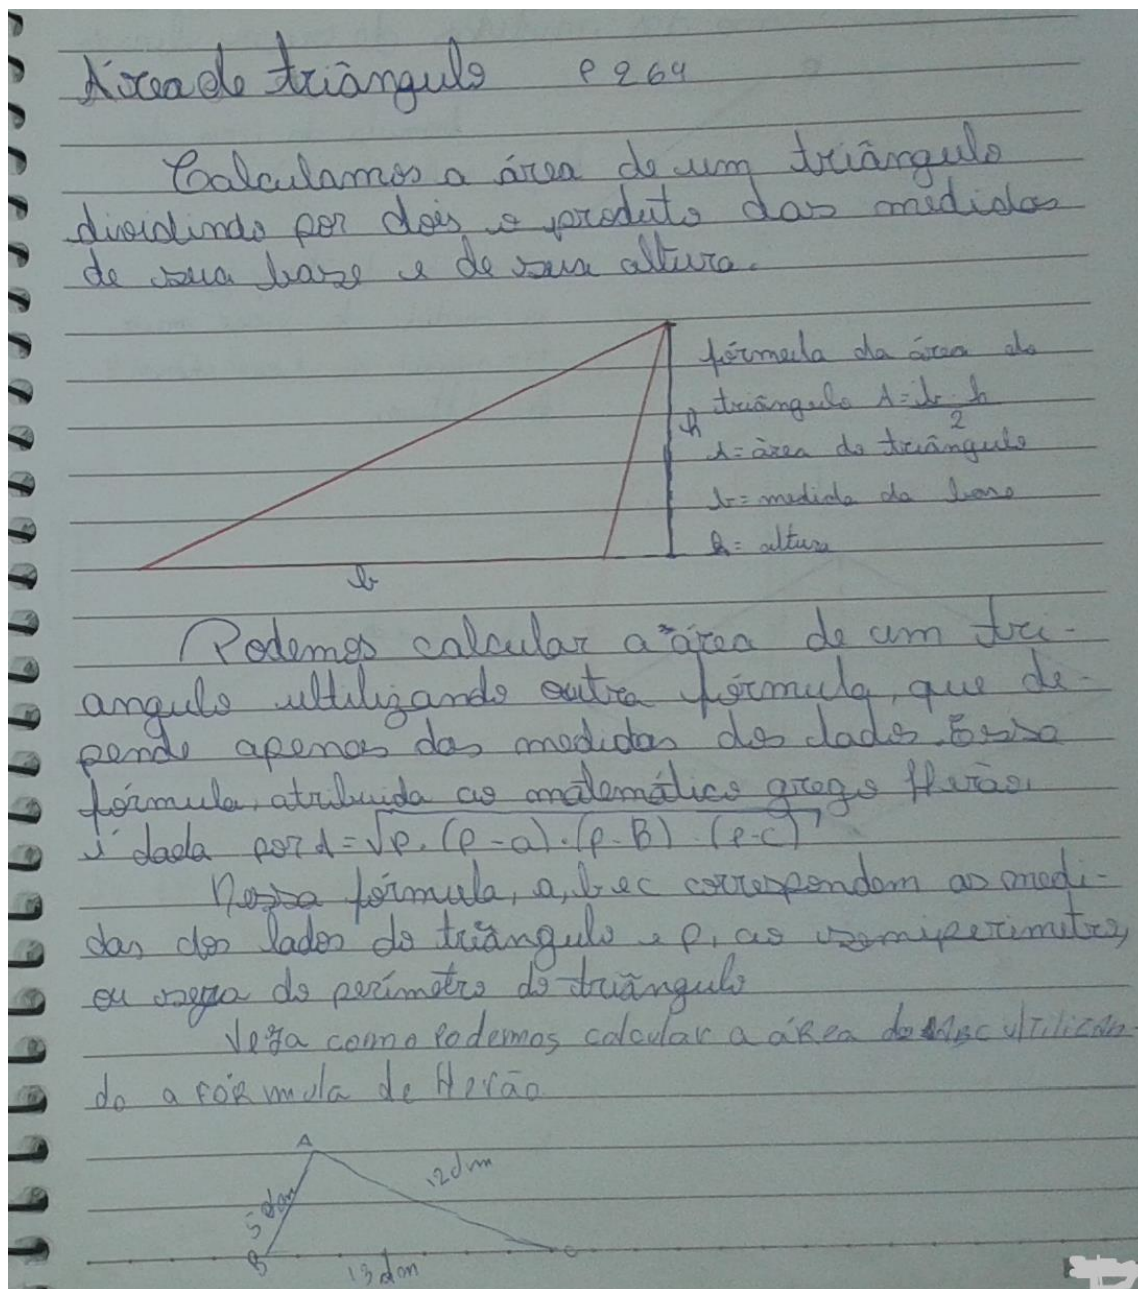 Área de triângulo P 264
Calculamos a área de um triângulo
dividindo por dois o produto das medidas
de sua base e de sua altura.
fórmula da área do
triângulo A = b . h
2
h
A = àrea do triângulo
b = medida da base
h = altura
b
Podemos calcular a área de um tri-
angulo ultilizando outra fórmula, que de-
pende apenas das medidas dos lados. Essa
fórmula, atribuida ao matemático grego Herão,
é dada por A = √P. (P - a) . (P - B) . (P - C)
Nessa fórmula, a, b e c correspondem as medi-
das dos lados do triângulo e P, ao semiperimetro,
ou seja do perímetro do triângulo
Veja como Podemos calcular a área do ABC Utilizan-
do a FÓRmula de Herão
A
12 dm
5 dm
B
C
13 dm